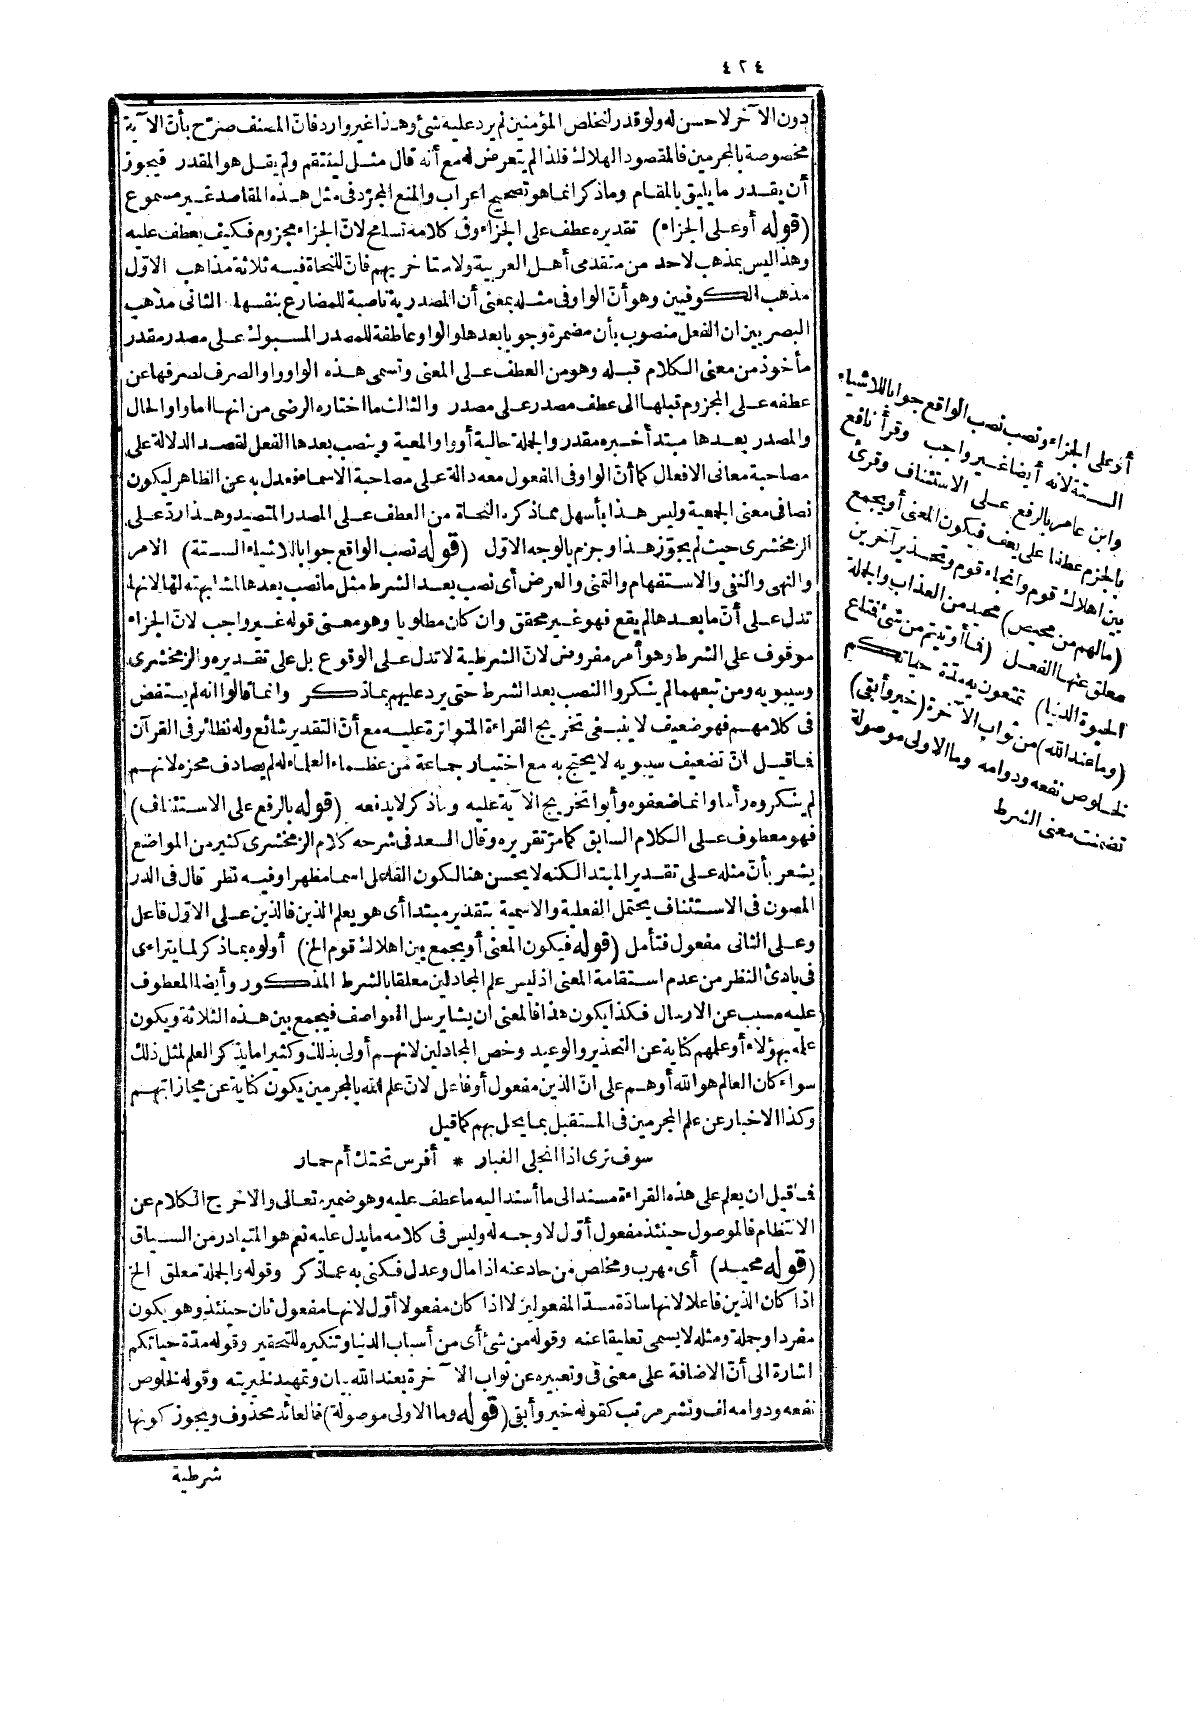 ٤٢٤
دون الآخر لا حسن له ولو قدر لنخلص المؤمنين لم يرد عليه شئ وهذا غير وارد فانّ المصنف صرّح بأنّ الآية
مخصوصة بالمجرمين فالمقصود الهلاك فلذا لم يتعرض له مع أنه قال مثل لينتقم ولم يقل هو المقدر فيجوز
أن يقدر ما يليق بالمقام وما ذكر انما هو تصحيح اعراب والمنع المجرّد فى مثل هذه المقاصد غير مسموع
(قوله أو على الجزاء) تقديره عطف على الجزاء وفى كلامه تسامح لانّ الجزاء مجزوم فكيف يعطف عليه
وهذا ليس بمذهب لاحد من متقدمى أهل العربية ولا متأخريهم فانّ للنحاة فيه ثلاثة مذاهب الاوّل
مذهب الكوفيين وهو أنّ الواو فى مثله بمعنى أن المصدرية ناصبة للمضارع بنفسها الثانى مذهب
البصريين ان الفعل منصوب بأن مضمرة وجوبا بعدها والواو عاطفة للمصدر المسبوك على مصدر مقدر
مأخوذ من معنى الكلام قبله وهو من العطف على المعنى وتسمى هذه الواو واو الصرف لصرفها عن
عطفه على المجزوم قبلها الى عطف مصدر على مصدر والثالث ما اختاره الرضى من انها اما واو الحال
والمصدر بعدها مبتدأ خبره مقدر والجملة حالية أو واو المعية وينصب بعدها الفعل لقصد الدلالة على
مصاحبة معانى الافعال كما أنّ الواو فى المفعول معه دالة على مصاحبة الاسماء فعدل به عن الظاهر ليكون
نصا فى معنى الجمعية وليس هذا بأسهل مما ذكره النحاة من العطف على المصدر المتصيد وهذا ردّ على
الزمخشرى حيث لم يجوّز هذا وجزم بالوجه الاوّل (قوله نصب الواقع جوابا للاشياء الستة) الامر
والنهى والنفى والاستفهام والتمنى والعرض أى نصب بعد الشرط مثل ما نصب بعد هذا لمشابهته لها لانها
تدل على أنّ ما بعدها لم يقع فهو غير محقق وان كان مطلوبا وهو معنى قوله غير واجب لانّ الجزاء
موقوف على الشرط وهو أمر مفروض لانّ الشرطية لا تدل على الوقوع بل على تقديره والزمخشرى
وسيبويه ومن تبعهما لم ينكروا النصب بعد الشرط حتى يرد عليهم بما ذكر وانما قالوا انه لم يستفض
فى كلامهم فهو ضعيف لا ينبغى تخريج القراءة المتواترة عليه مع أنّ التقدير شائع وله نظائر فى القرآن
فما قيل انّ تضعيف سيبويه لا يحتج به مع اختيار جماعة من عظماء العلماء له لم يصادف محزه لانهم
لم ينكروه رأسا وانما ضعفوه وأبوا تخريج الآية عليه وما ذكر لا يدفعه (قوله بالرفع على الاستئناف)
فهو معطوف على الكلام السابق كما مرّ تقريره وقال السعد فى شرحه كلام الزمخشرى كثير من المواضع
يشعر بأنّ مثله على تقدير المبتدا لكنه لا يحسن هنا لكون الفاعل اسما مظهرا وفيه نظر قال فى الدر
المصون فى الاستئناف يحتمل الفعلية والاسمية بتقدير مبتدا أى هو يعلم الذين فالذين على الاوّل فاعل
وعلى الثانى مفعول فتأمل (قوله فيكون المعنى أو يجمع بين اهلاك قوم الخ) أولوه بما ذكر لما يتراءى
فى بادئ النظر من عدم استقامة المعنى اذ ليس علم المجادلين معلقا بالشرط المذكور وأيضا المعطوف
عليه مسبب عن الارسال فكذا يكون هذا فالمعنى ان يشا يرسل العواصف فيجمع بين هذه الثلاثة ويكون
علمه بهؤلاء أو علمهم كناية عن التحذير والوعيد وخص المجادلين لانهم أولى بذلك وكثيرا ما يذكر العلم لمثل ذلك
سواء كان العالم هو الله أو هم على انّ الذين مفعول أو فاعل لانّ علم الله بالمجرمين يكون كناية عن مجازاتهم
وكذا الاخبار عن علم المجرمين فى المستقبل بما يحل بهم كما قيل
سوف ترى اذا انجلى الغبار * أفرس تحتك أم حمار
فما قيل ان يعلم على هذه القراءة مسند الى ما أسند اليه ما عطف عليه وهو ضميره تعالى والا خرج الكلام عن
الانتظام فالموصول حينئذ مفعول أوّل لا وجه له وليس فى كلامه ما يدل عليه نعم هو المتبادر من السياق
(قوله محيد) أى مهرب ومخلص من حاد عنه اذا مال وعدل فكنى به عما ذكر وقوله والجملة معلق الخ
اذا كان الذين فاعلا لانها سادّة مسدّ المفعولين لا اذا كان مفعولا أوّل لانها مفعول ثان حينئذ وهو يكون
مفردا وجملة ومثله لا يسمى تعليقا عنه وقوله من شئ أى من أسباب الدنيا وتنكيره للتحقير وقوله مدّة حياتكم
اشارة الى أنّ الاضافة على معنى فى وتعبيره عن ثواب الآخرة بعند الله بيان وتمهيد لخيريته وقوله لخلوص
نفعه ودوامه لف ونشر مرتب كقوله خير وأبقى (قوله وما الاولى موصولة) فالعائد محذوف ويجوز كونها
شرطية
أو على الجزاء ونصب نصب الواقع جوابا للاشياء
الستة لانه أيضا غير واجب وقرأ نافع
وابن عامر بالرفع على الاستئناف وقرئ
بالجزم عطفا على يعف فيكون المعنى أو يجمع
بين اهلاك قوم وانجاء قوم وتحذير آخرين
(مالهم من محيص) محيد من العذاب والجملة
معلق عنها الفعل (فما أوتيتم من شئ فمتاع
الحيوة الدنيا) تمتعون به مدّة حياتكم
(وما عند الله) من ثواب الآخرة (خير وأبقى)
لخلوص نفعه ودوامه وما الاولى موصولة
تضمنت معنى الشرط